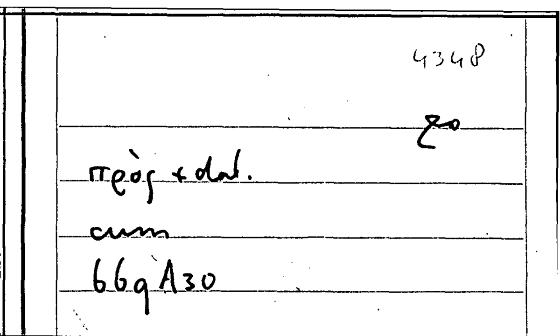 4348
πρὸς + dat.
cum
669 A30